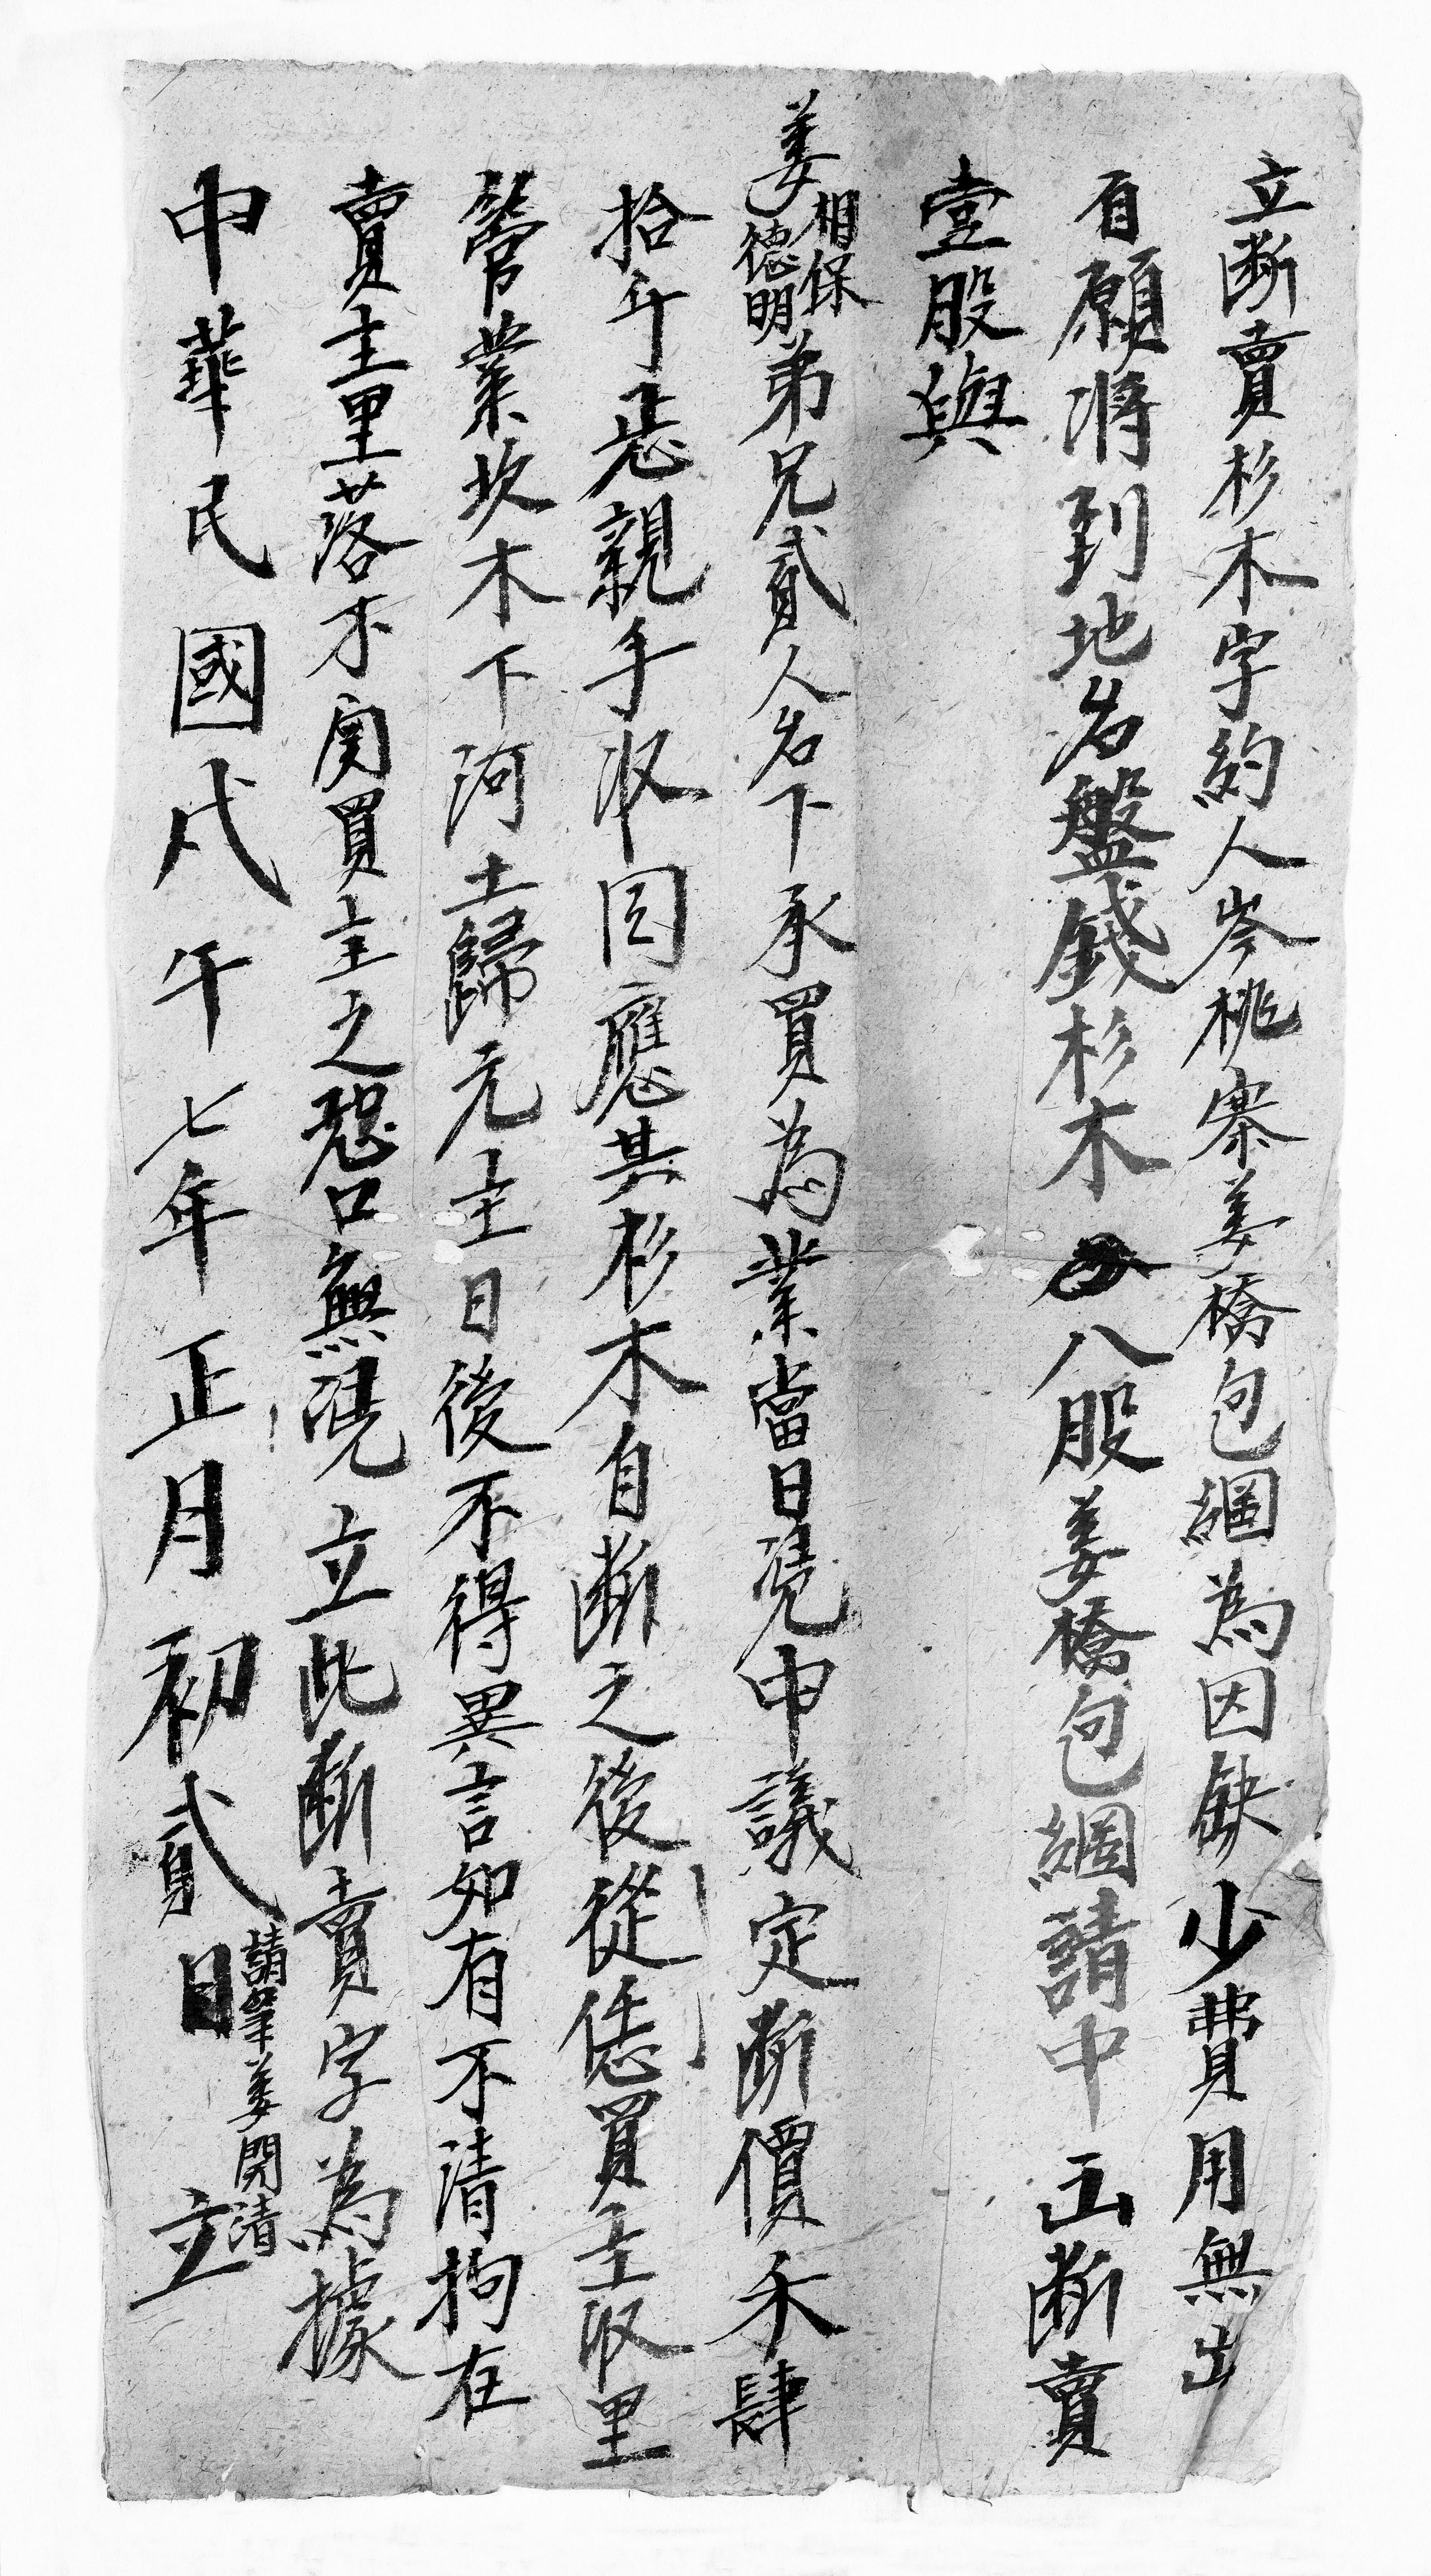 立断賣杉木字約人岑桃寨姜橋包綑為因缺少費用無出
自願將到地名盤錢杉木八股姜橋包綑請中正断賣
壹股與
姜相保德明弟兄貳人名下承買為業當日凴中議定断價禾肆
拾斤㤙親手収囙應其杉木自断之後從恁買主収里
管業坎木下河土歸元主日後不得異言如有不清拘在
賣主里落不関買主之恐口無凴立此断賣字為據
請筆姜開清
中華民國戊午七年正月初貳日立